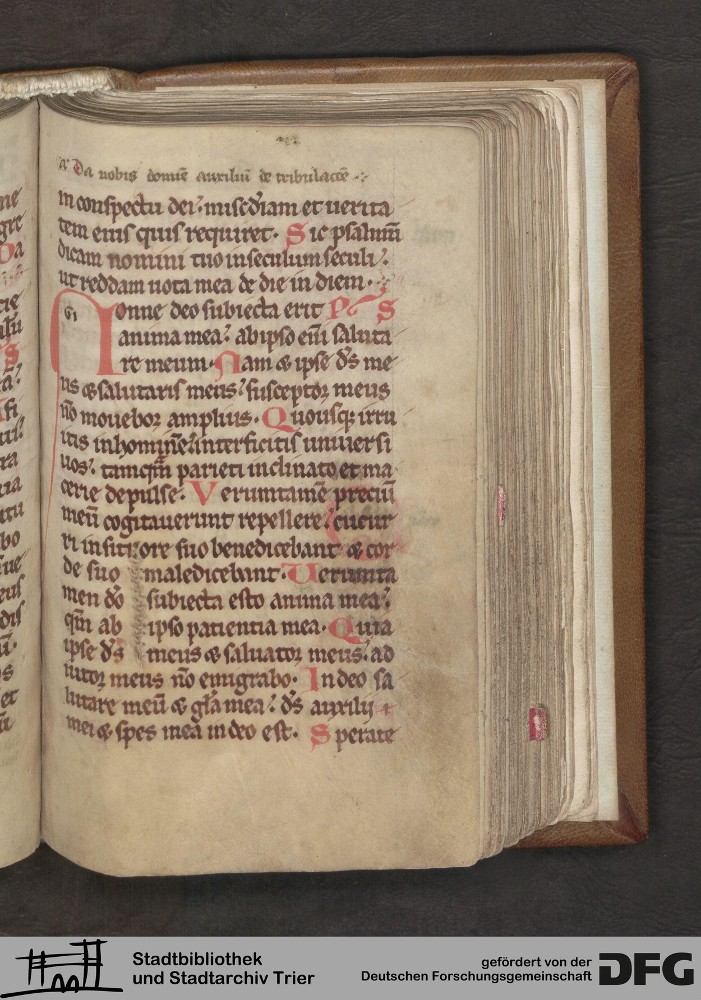 aͣ Da nobis domiē auxiliū de tribulacōe
in conspectu dei; misc̄diam et uerita
tem eius quis requiret. Sic psalmū
dicam nomini tuo in seculum seculi;
ut reddam uota mea de die in diem.
Nonne deo subiecta erit PS
61
anima mea; ab ipso eni saluta
re meum. Nam & ipse d̄s me
us & salutaris meus; susceptor meus
nō mouebor amplius. Quousq; irru
itis in hominē; interficitis uniuersi
uos; tamqm̄ parieti inclinato et ma
cerie depulse. Verumtamē preciū
meū cogitauerunt repellere; cucur
ri in siti; ore suo benedicebant & cor
de suo maledicebant. Uerumta
men dō subiecta esto anima mea;
qm̄ ab ipso patientia mea. Quia
ipse d̄s meus & saluator meus; ad
iutor meus nō emigrabo. In deo sa
lutare meū & gl̄a mea; d̄s auxilii
mei & spes mea in deo est. Sperate
Stadtbibliothek
und Stadtarchiv Trier
gefördert von der
Deutschen Forschungsgemeinschaft
DFG